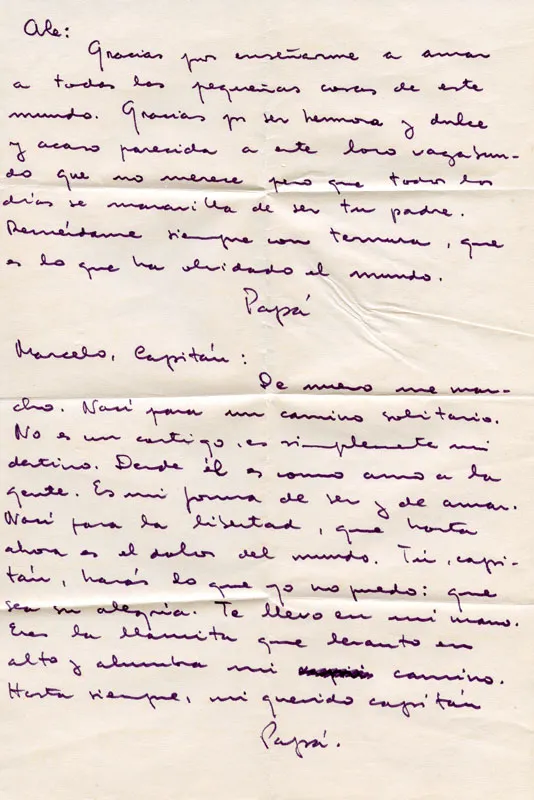 Ale:
Gracias por enseñarme a amar
a todas las pequeñas cosas de este
mundo. Gracias pr ser hermosa y dulce
y acaso parecida a este loco vagabun-
do que no merece pero que todos los
días se maravilla de ser tu padre.
Recuérdame siempre con ternura, que
es lo que ha olvidado el mundo.
Papá
Marcelo, Capitán:
De nuevo me mar-
cho. Nací para un camino solitario.
No es un castigo, es simplemente mi
destino. Desde él es como amo a la
gente. Es mi forma de ser y de amar.
Nací para la libertad, que hasta
ahora es el dolor del mundo. Tú, capi-
tán, harás lo que yo no puedo: que
sea su alegría. Te llevo en mi mano.
Eres la llamita que levanto en
alto y alumbra mi camino.
Hasta siempre, mi querido capitán
Papá.